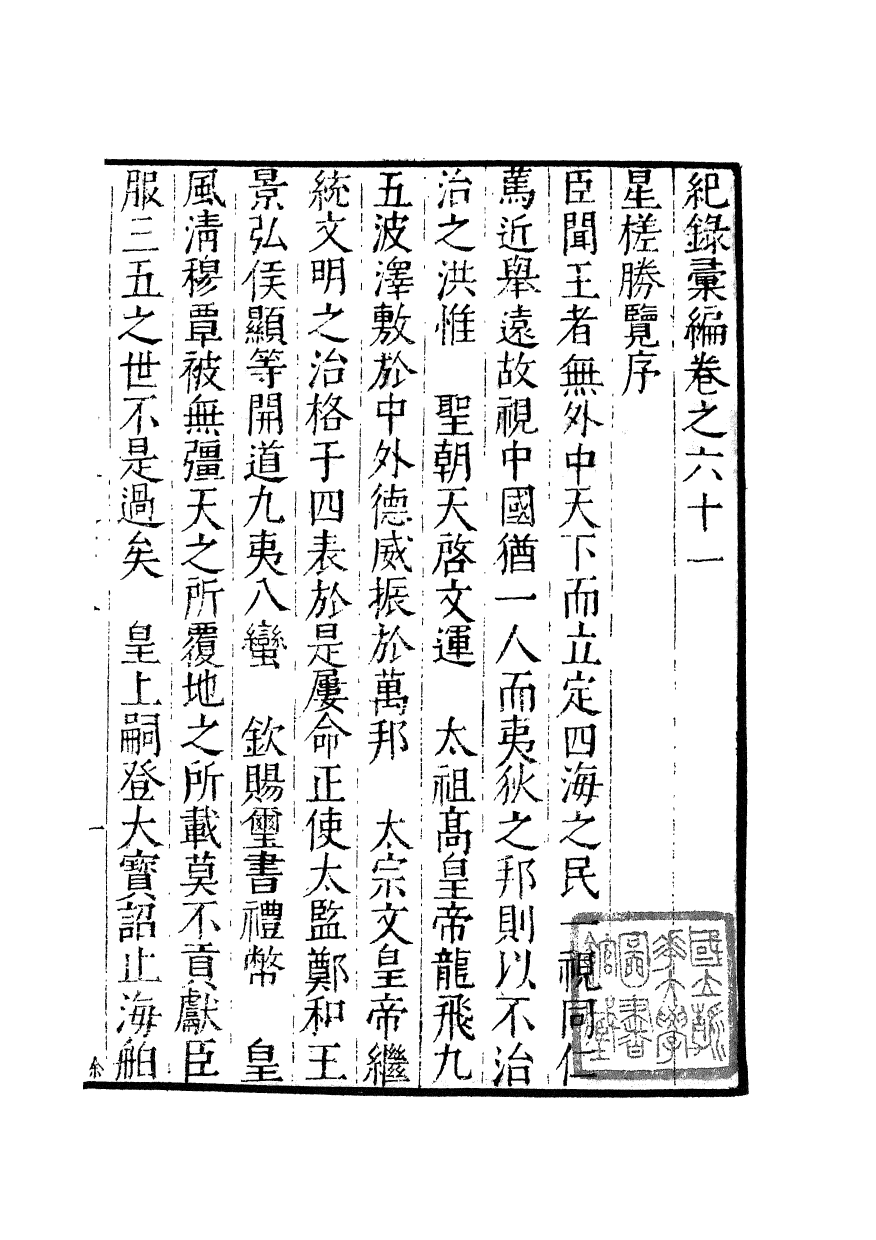 紀錄彙編卷之六十一
星槎勝覽序
臣聞王者無外中天下而立定四海之民一視同仁
篤近舉遠故視中國猶一人而夷狄之邦則以不治
治之洪惟　聖朝天啓文運　太祖高皇帝龍飛九
五波澤敷於中外德威振於萬邦　太宗文皇帝繼
統文明之治格于四表於是屢命正使太監鄭和王
景弘侯顯等開道九夷八蠻　欽賜璽書禮幣　皇
風清穆覃被無彊天之所覆地之所載莫不貢獻臣
服三五之世不是過矣　皇上嗣登大寶詔止海舶
一
國立
大學
圖書